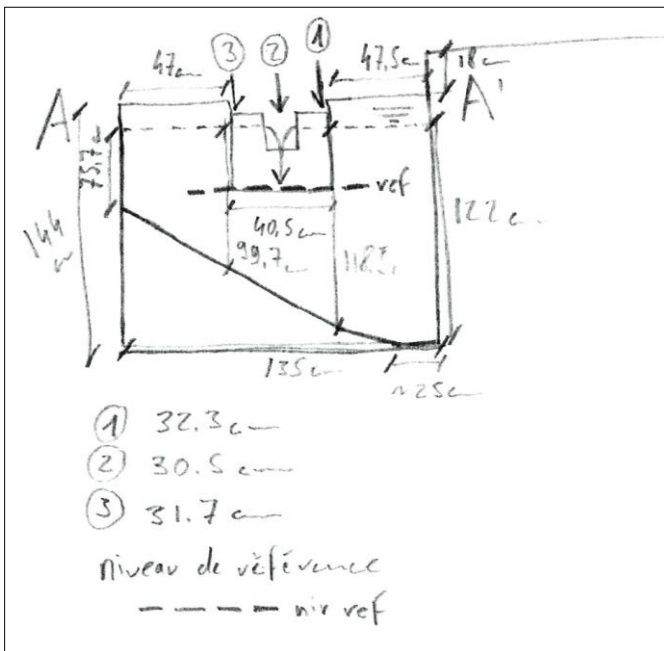 ③ ② ①
47cm
47,5cm
18cm
A
A'
75,7cm
ref
40,5cm
99,7cm
122cm
144cm
135cm
~25cm
① 32.3cm
② 30.5cm
③ 31.7cm
niveau de référence
---- niv ref